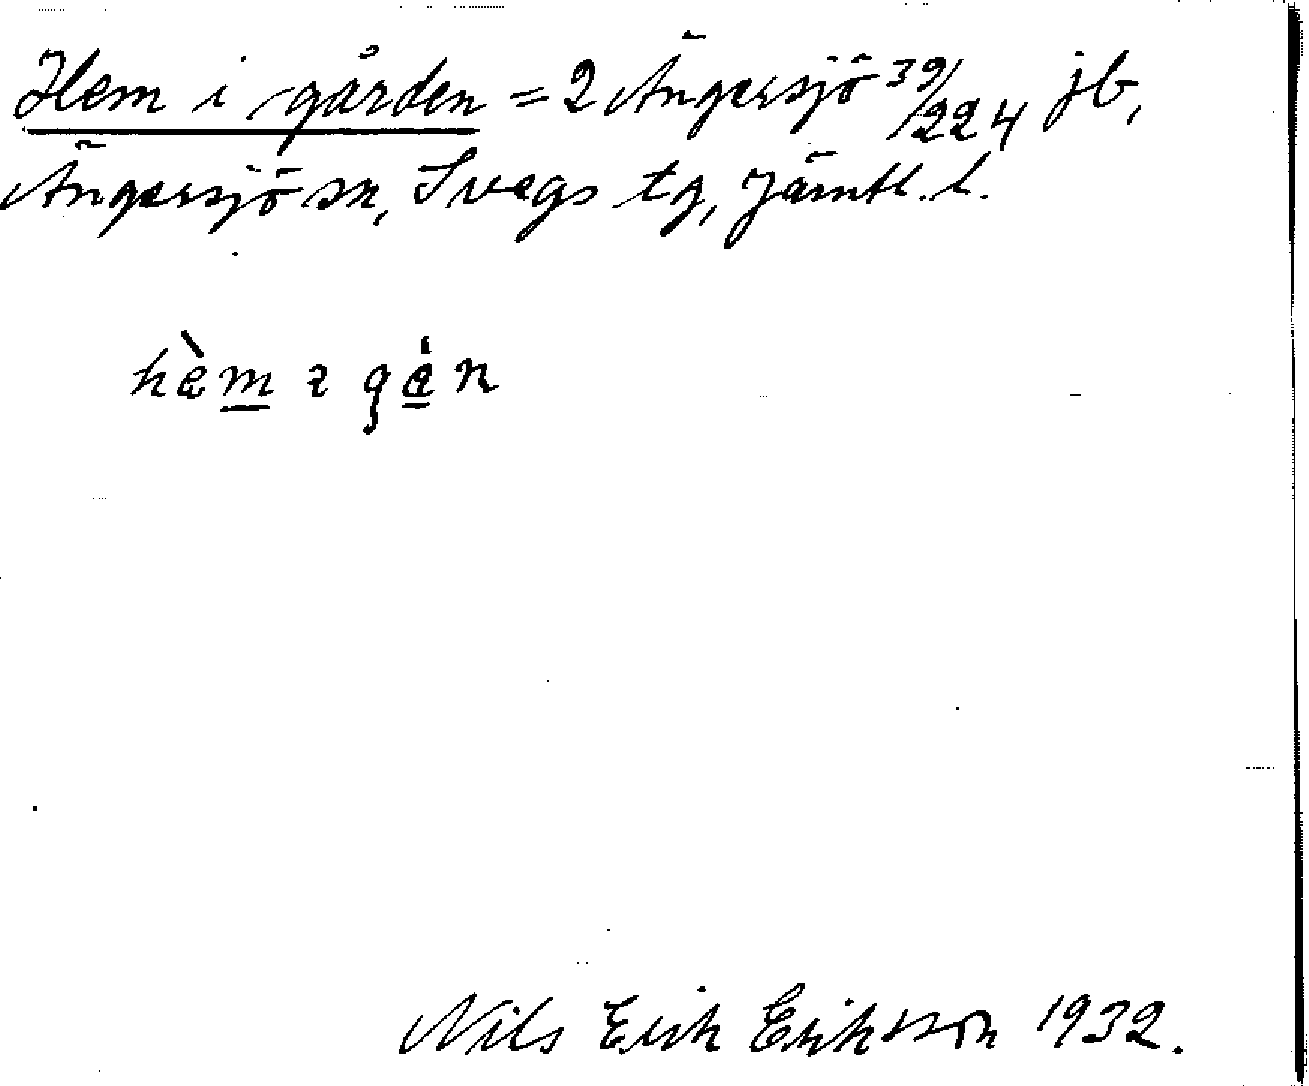 Hem i gården = 2 Ängersjö 39/224 jb,
Ängersjö sn, Svegs tg, Jämtl. l.
hèm ɿ gán
Nils Erik Eriksson 1932.